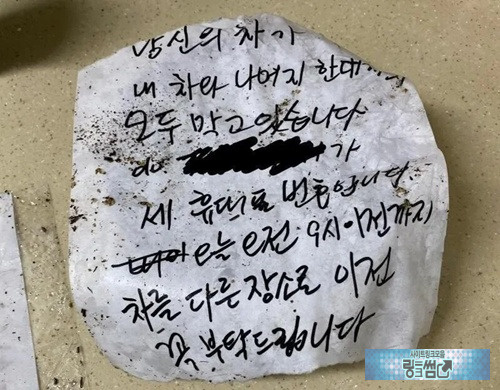 당신의 차가
내 차와 나머지 한대까지
모두 막고있습니다
가
제 휴대폰 번호입니다
오늘 오전 9시이전까지
차를 다른장소로 이전
꼭 부탁드립니다
사이트링크모음
링크썸